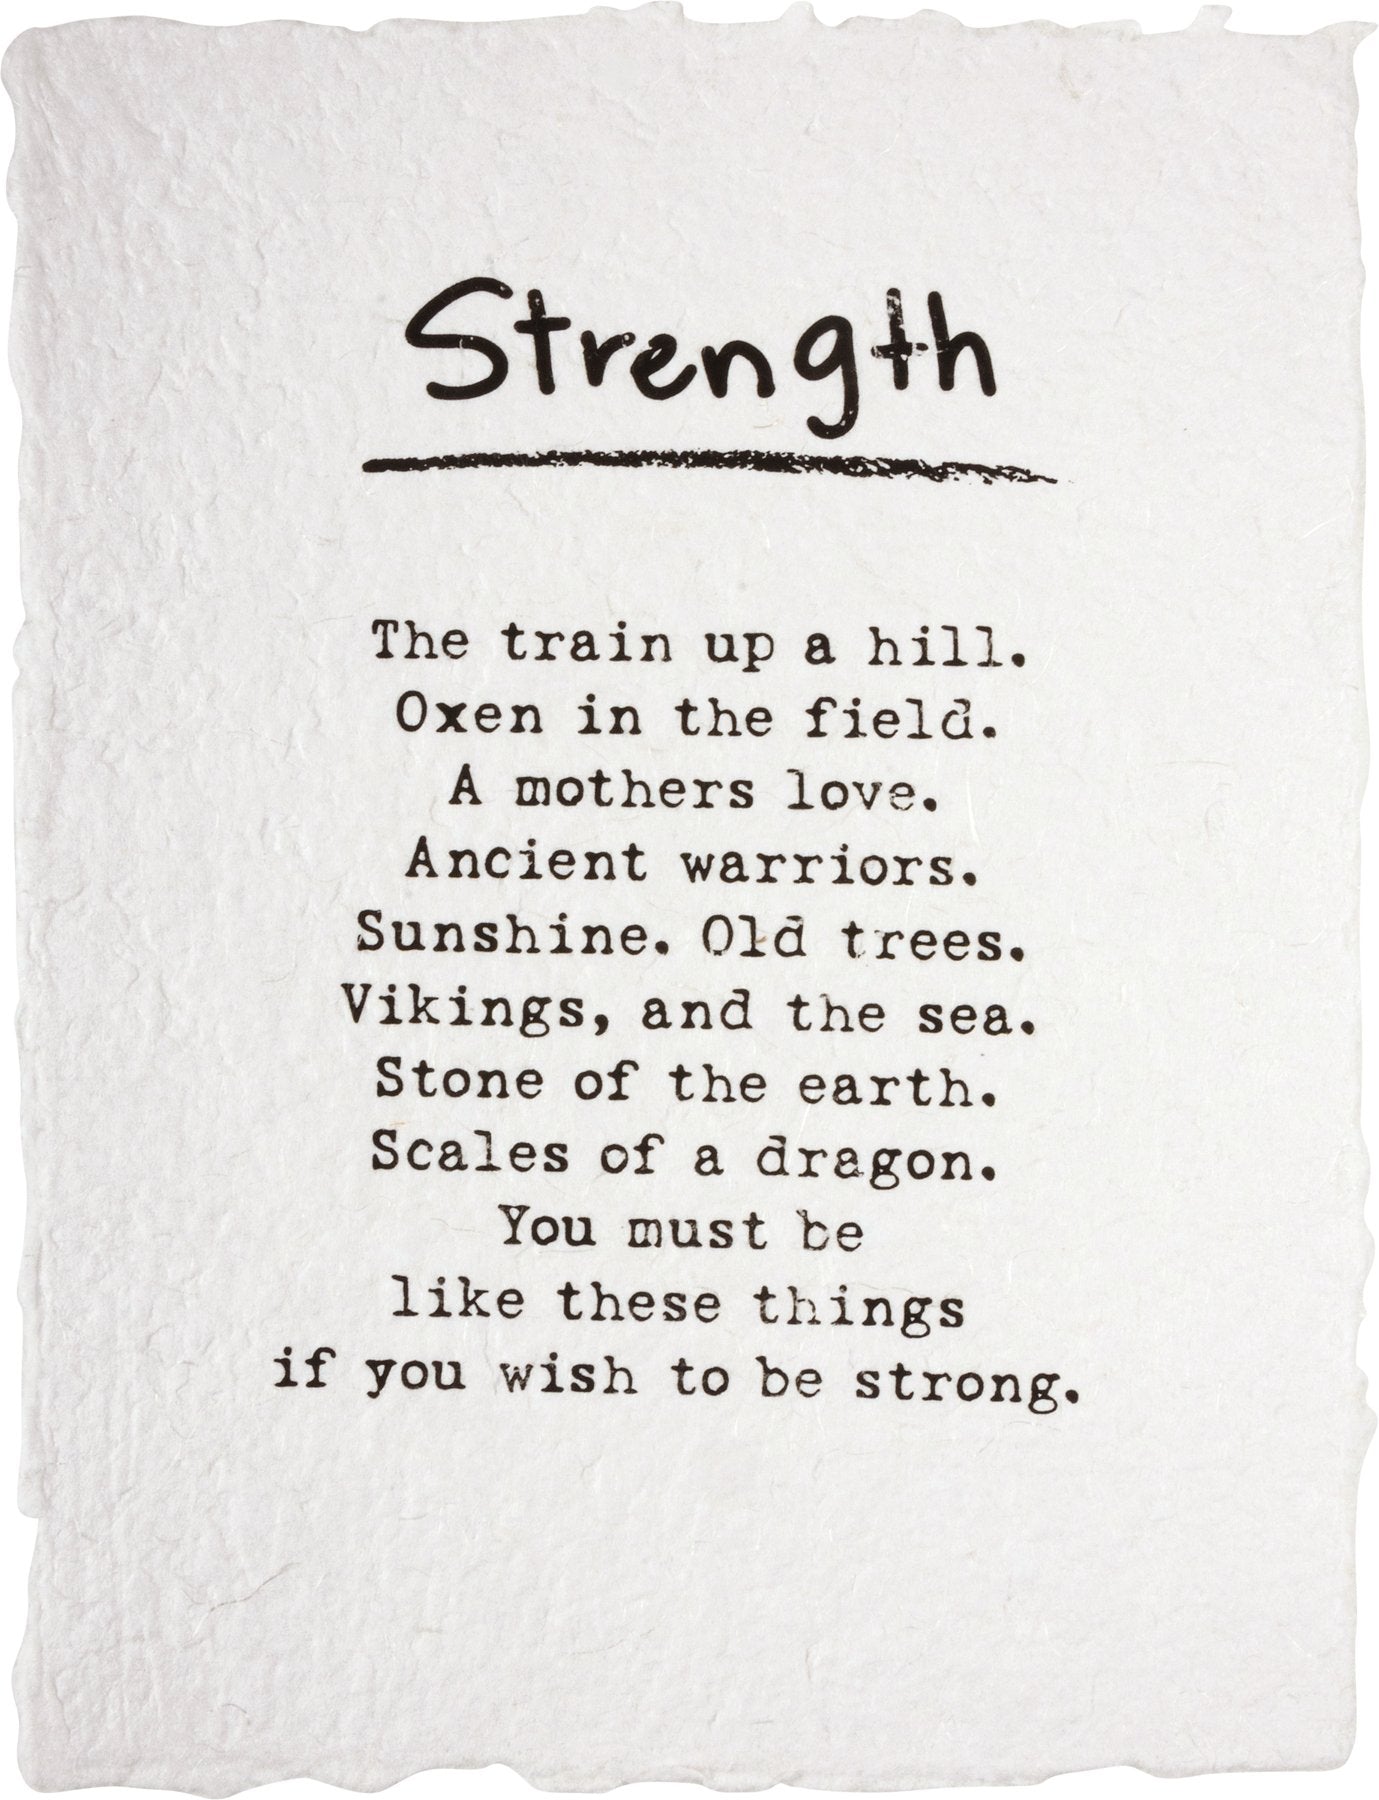 Strength
The train up a hill.
Oxen in the field.
A mothers love.
Ancient warriors.
Sunshine. Old trees.
Vikings, and the sea.
Stone of the earth.
Scales of a dragon.
You must be
like these things
if you wish to be strong.